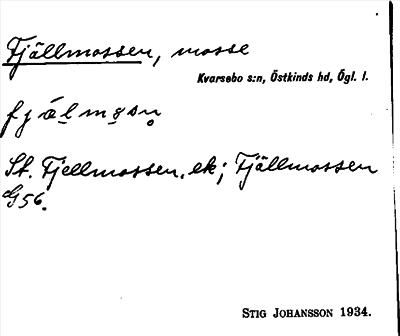 Fjällmossen, mosse
Kvarsebo s:n, Östkinds hd, Ögl. l.
St. Fjellmossen, ek; Fjällmossen
G56.
STIG JOHANSSON 1934.